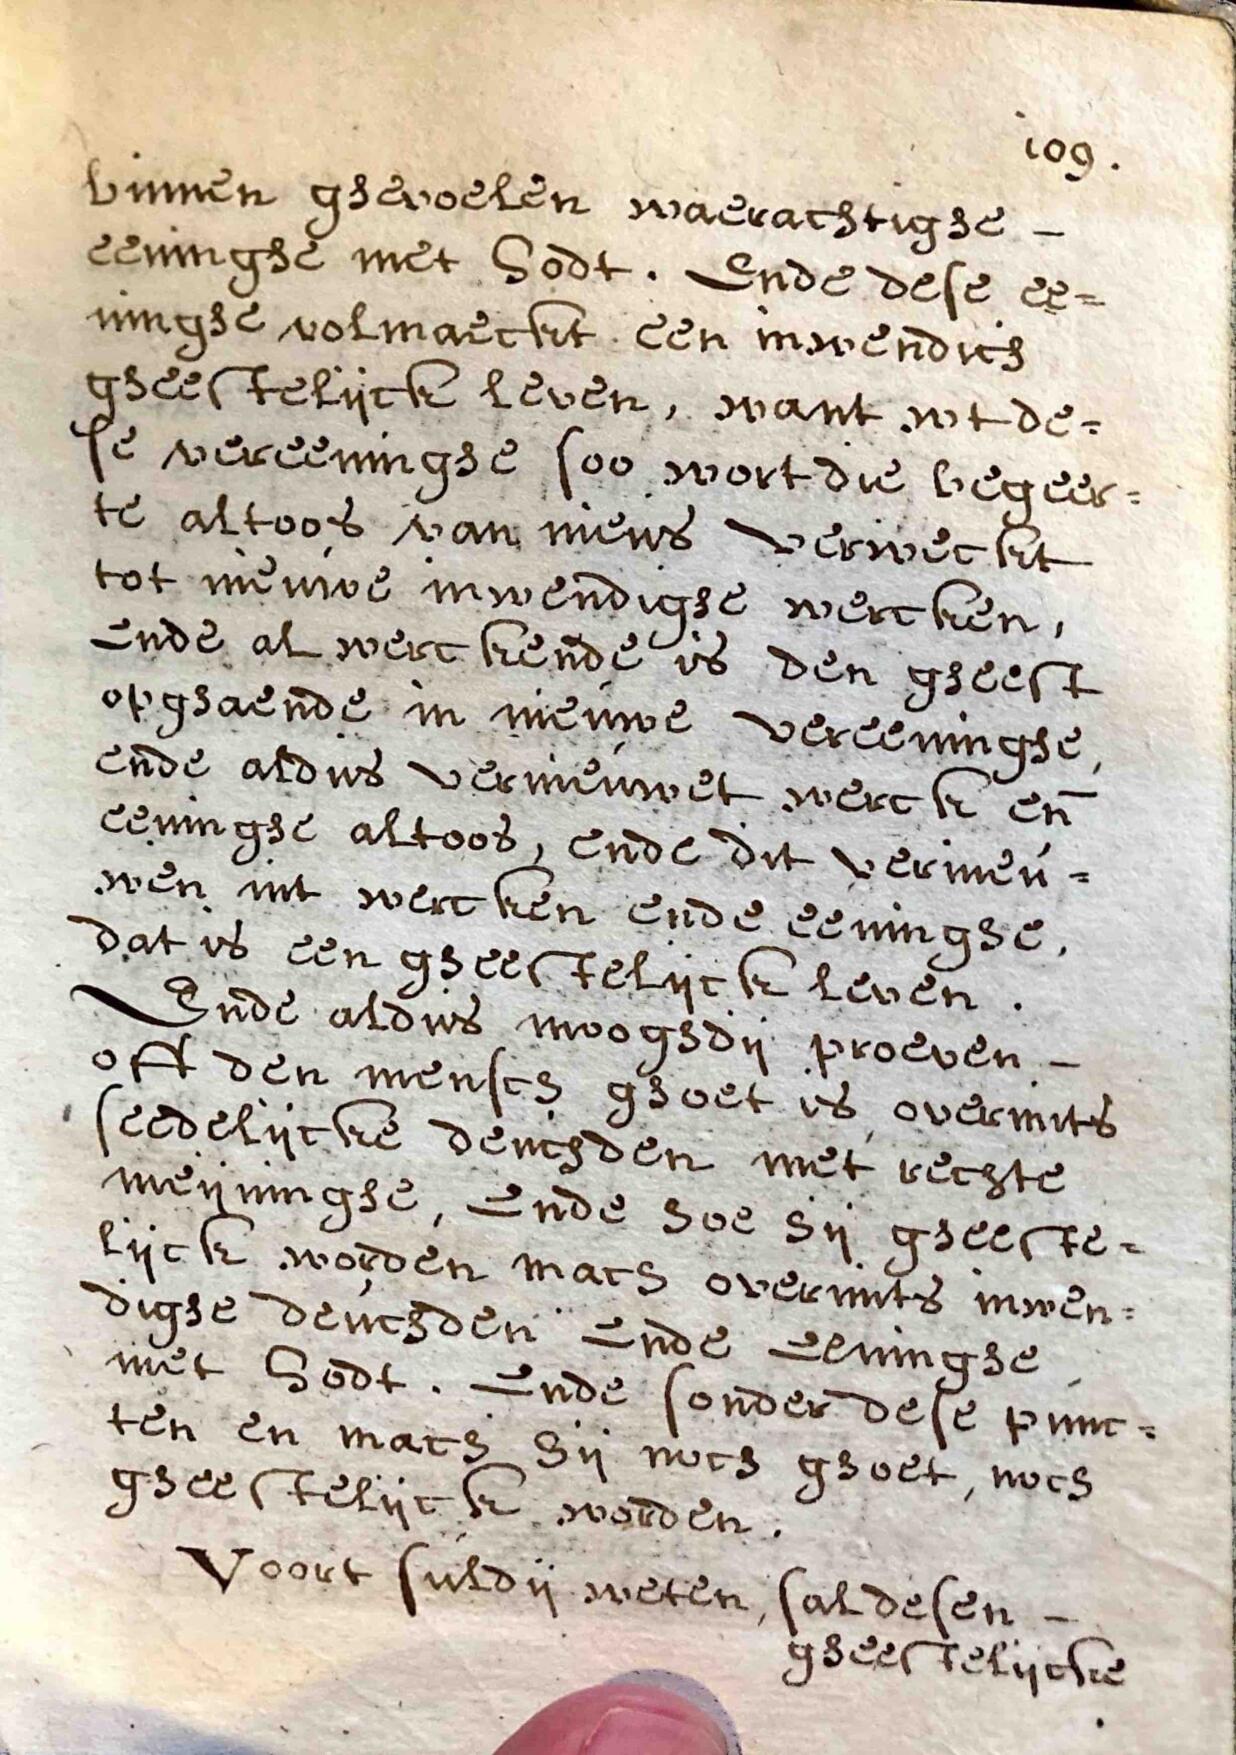 109.
binnen ghevoelen waerachtighe –
eeninghe met Godt. Ende dese ee=
ninghe volmaeckt een inwendich
gheestelijck leven, want wt de=
se vereeninghe soo wort die begeer=
te altoos van nieus verweckt
tot nieuwe inwendighe wercken,
Ende al werckende is den gheest
opghaende in nieuwe vereeninghe,
ende aldus vernieuwet werck en̄
eeninghe altoos, ende dit vernieu=
wen int wercken ende eeninghe,
dat is een gheestelijck leven.
Ende aldus mooghdij proeven –
oft den mensch ghoet is, overmits
seedelijcke deuchden met rechte
meijninghe, Ende hoe hij gheeste=
lijck worden mach overmits inwen=
dighe deuchden Ende Eeninghe
met Godt. Ende sonder dese punc=
ten en mach hij noch ghoet, noch
gheestelijck worden.
Voort suldij weten, sal desen –
gheestelijcke